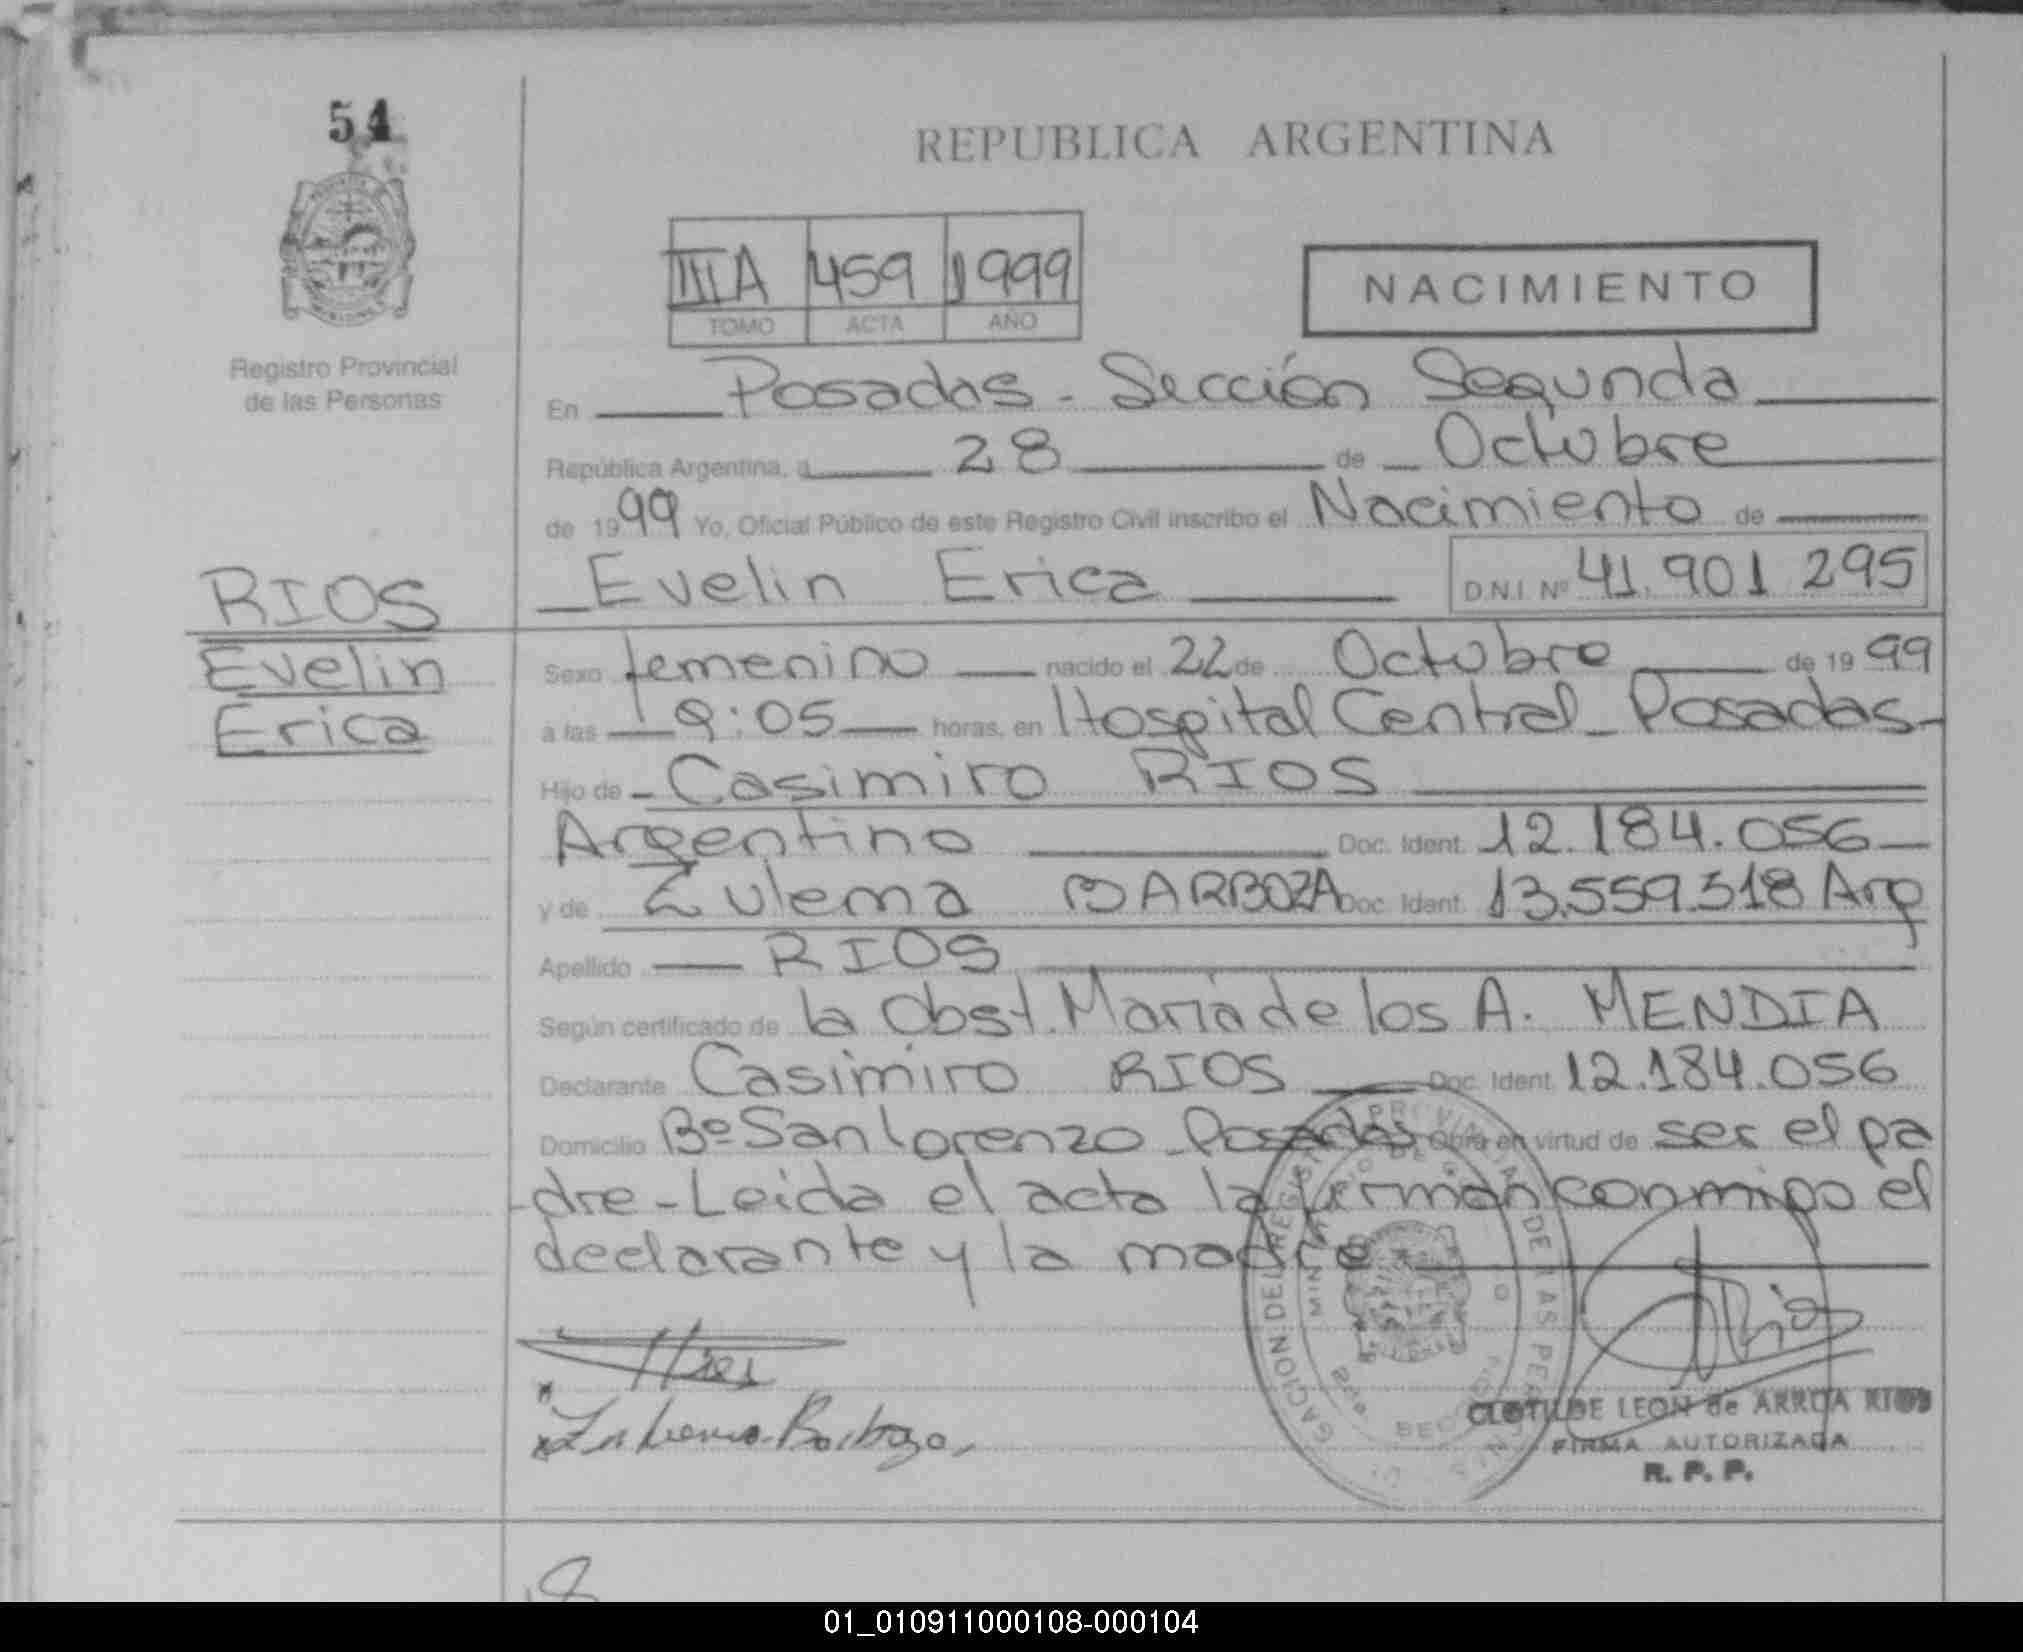 54
REPUBLICA ARGENTINA
IIIA 459 1999
TOMO ACTA AÑO
NACIMIENTO
Registro Provincial
de las Personas
En Posadas - Sección Segunda
República Argentina, a 28 de Octubre
de 1999 Yo, Oficial Público de este Registro Civil inscribo el Nacimiento de
Evelin Erica D.N.I. Nº 41.901.295
RIOS
Evelin
Erica
Sexo femenino nacido el 22 de Octubre de 1999
a las 9:05 horas, en Hospital Central - Posadas -
Hijo de - Casimiro RIOS
Argentino Doc. Ident. 12.184.056
y de Zulema BARBOZA Doc. Ident. 13.559.318 Arg
Apellido RIOS
Según certificado de la Obst. Maria de los A. MENDIA
Declarante Casimiro RIOS Doc. Ident. 12.184.056
Domicilio Bº San Lorenzo - Posadas Obra en virtud de ser el pa
-dre - Leida el acta la firman conmigo el
declarante y la madre
Zulema Barboza
CLOTILDE LEON de ARRUA RIOS
FIRMA AUTORIZADA
R. P. P.
01_010911000108-000104